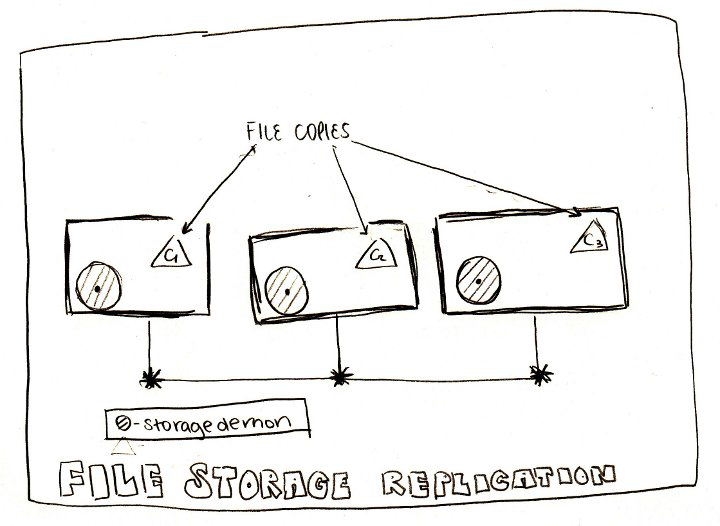 FILE COPIES
C1
C2
C3
-storage demon
FILE STORAGE REPLICATION